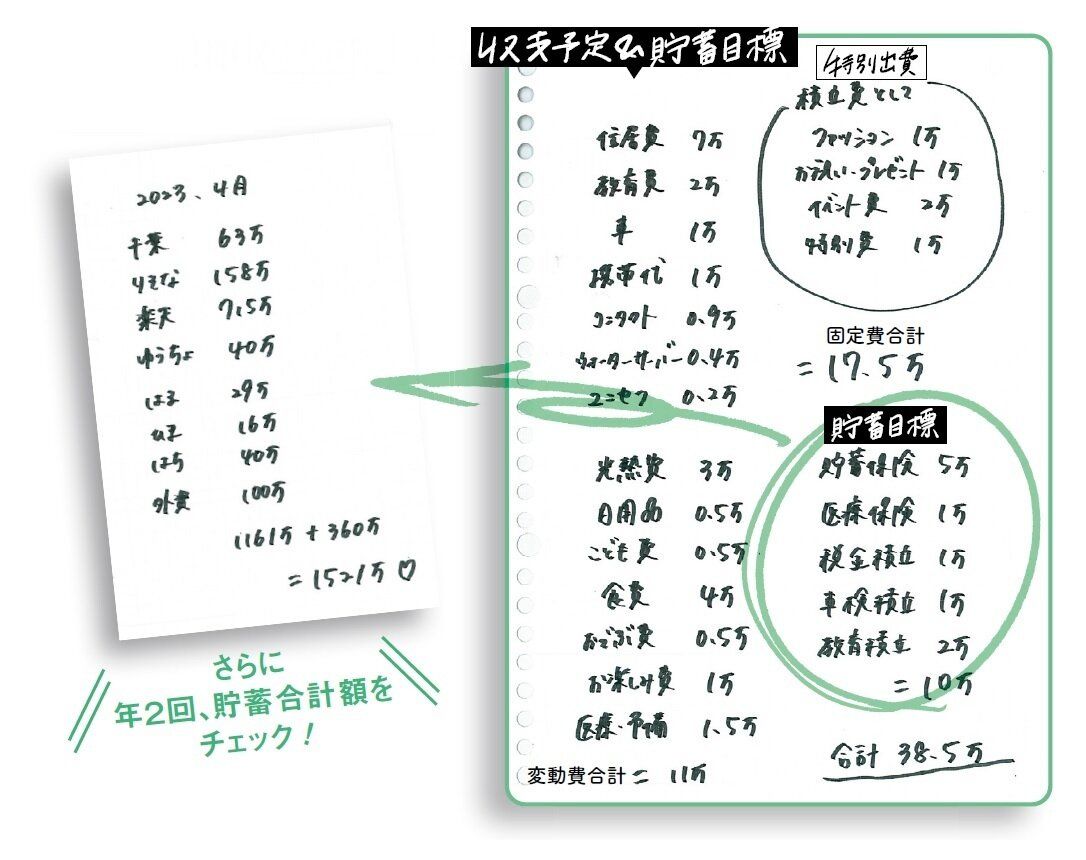 収支予定&貯蓄目標
特別出費
積立費として
ファッション 1万
お祝い・プレゼント 1万
イベント費 2万
特別費 1万
住居費 7万
教育費 2万
車 1万
携帯代 1万
コンタクト 0.9万
ウォーターサーバー 0.4万
ユニセフ 0.2万
固定費合計
=17.5万
光熱費 3万
日用品 0.5万
こども費 0.5万
食費 4万
0.5万
お楽しみ費 1万
医療・予備 1.5万
変動費合計 = 11万
貯蓄目標
貯蓄保険 5万
医療保険 1万
税金積立 1万
車検積立 1万
教育積立 2万
=10万
合計 38.5万
2023、4月
千葉 63万
りそな 158万
楽天 715万
ゆうちょ 40万
はる 29万
16万
はち 40万
外貨 100万
1161万+360万
=1521万♡
さらに
年2回、貯蓄合計額を
チェック!